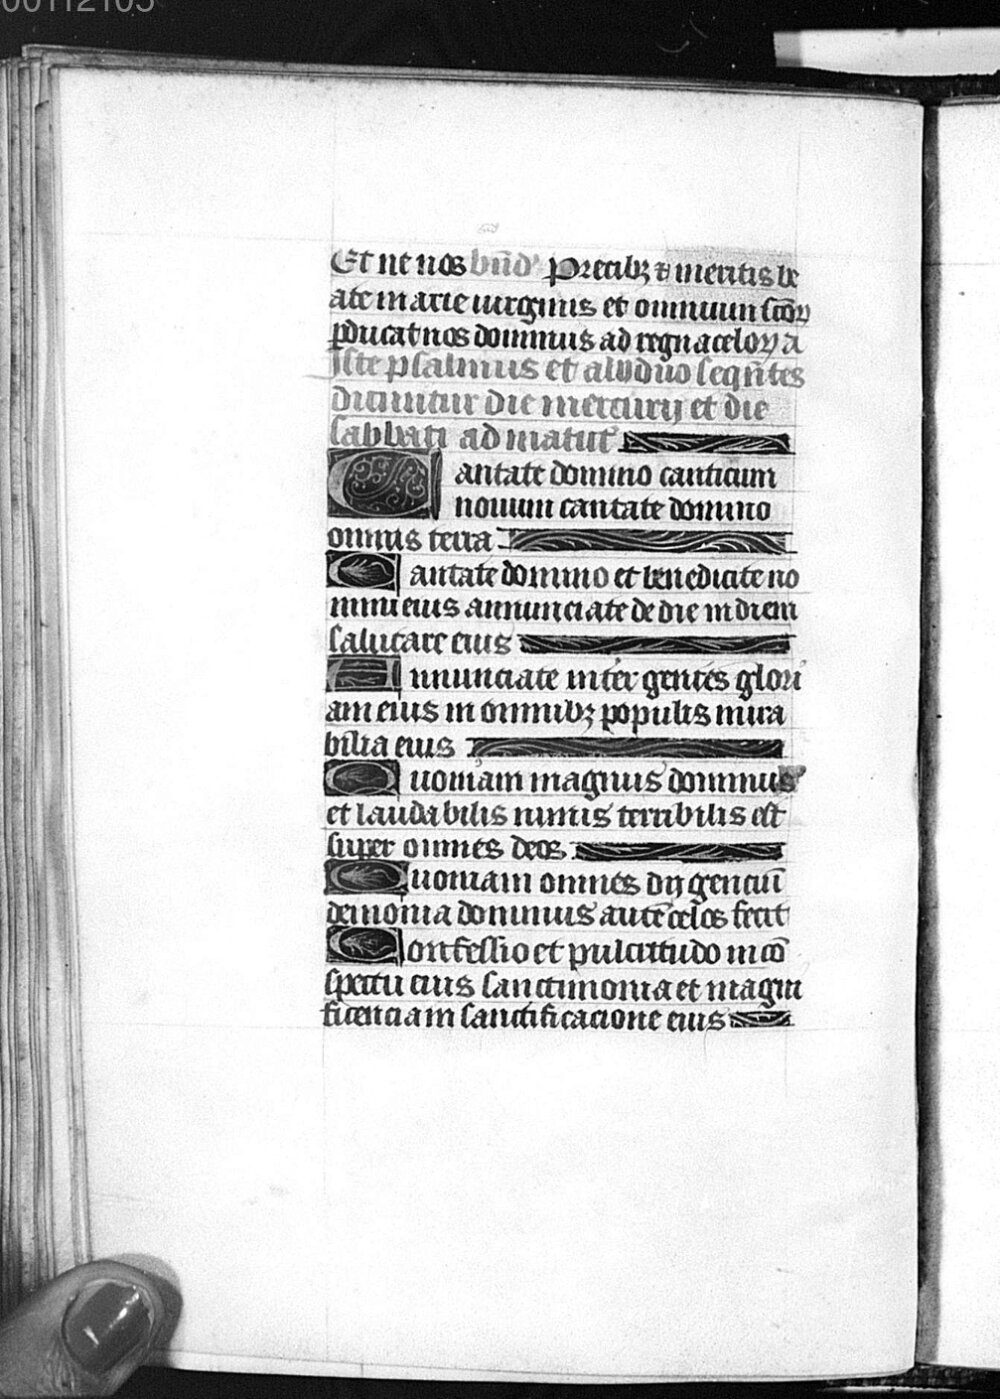 00112105
Et ne nos bn̄d' Precibꝫ ⁊ meritis be
ate marie uirginis et omnium sc̄oꝝ
ꝑducat nos dominus ad regna celoꝝ a
Iste psalmus et alij duo seqn̄tes
dicuntur die mercurij et die
sabbati ad matut'
Cantate domino canticum
nouum cantate domino
omnis terra
Cantate domino et benedicite no
mini eius annunciate de die in diem
salutare eius
Annunciate inter gentes glori
am eius in omnibꝫ populis mira
bilia eius
Quoniam magnus dominus
et laudabilis nimis terribilis est
super omnes deos
Quoniam omnes dij genciū
demonia dominus autē celos fecit
Confessio et pulcritudo in cō
spectu eius sanctimonia et magni
ficenciam sanctificacione eius